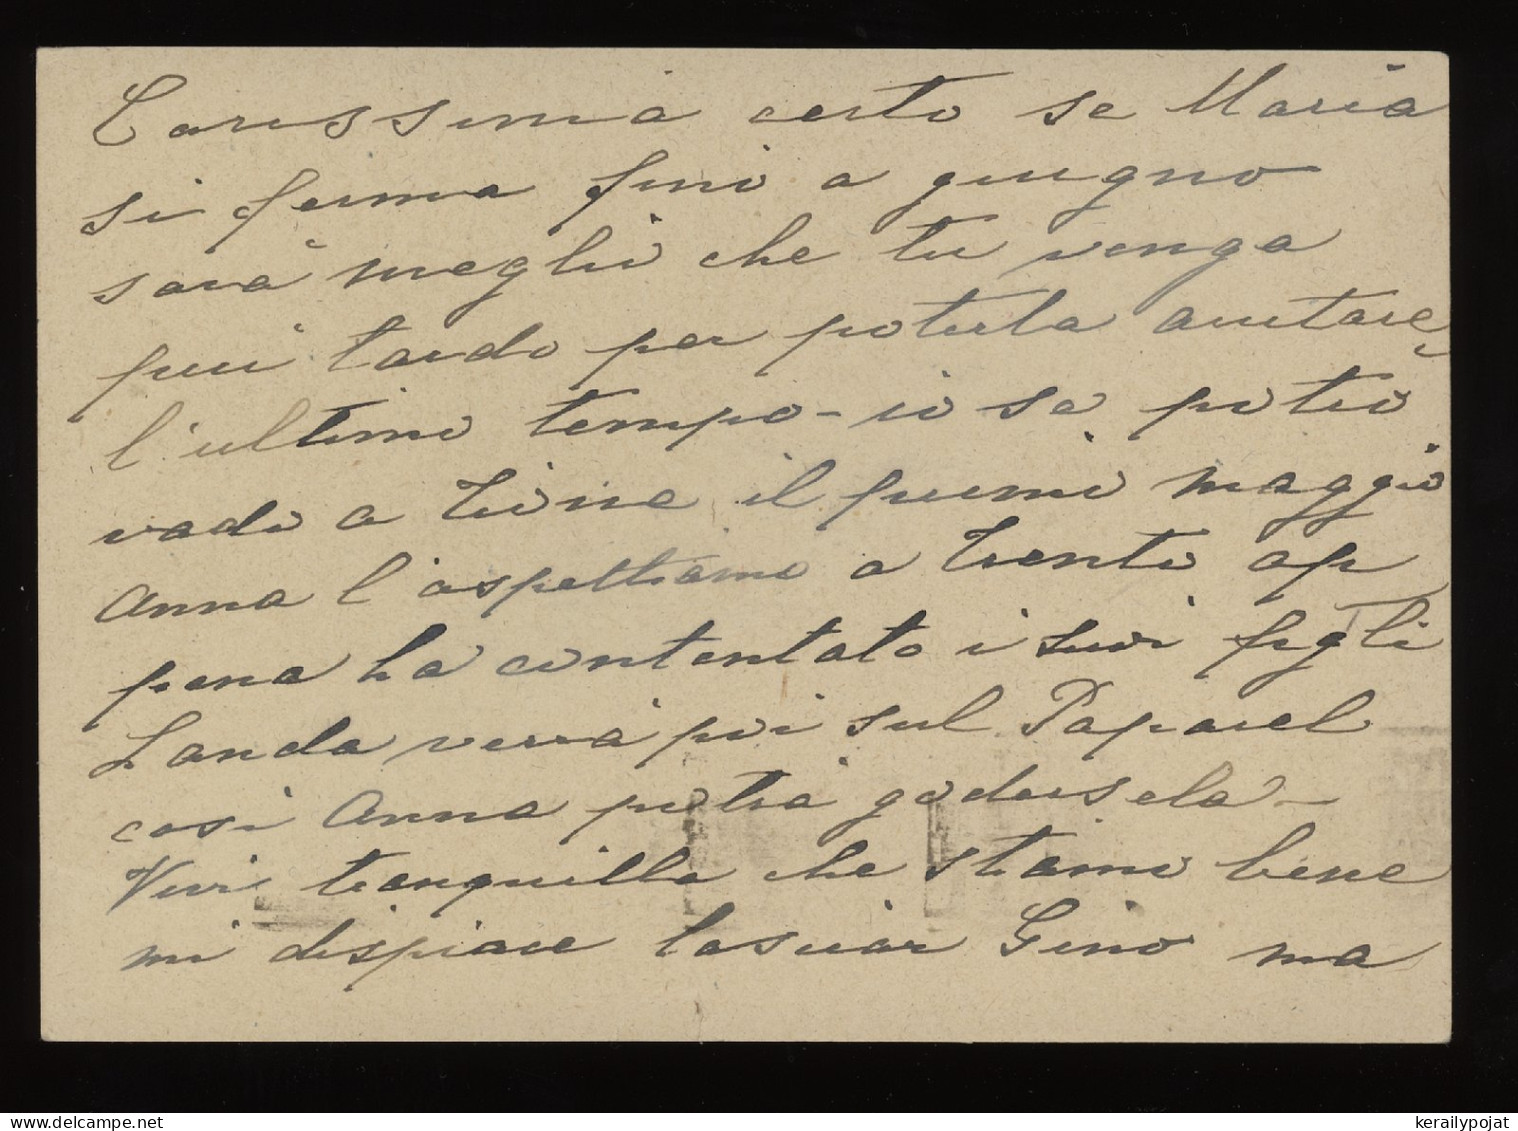 Carissima certo se Maria
si ferma fino a giugno
sarà meglio che tu venga
più tardo per poterla aiutare
l'ultimo tempo - io se potrò
vado a Trone il primo maggio
Anna l'aspettiamo a Trento ap
pena ha contentato i suoi figli
Landa verrà poi sul Paparel
così Anna potrà godersela -
Vivi tranquilla che stiamo bene
mi dispiace lasciar Gino ma
kerailypojat.com